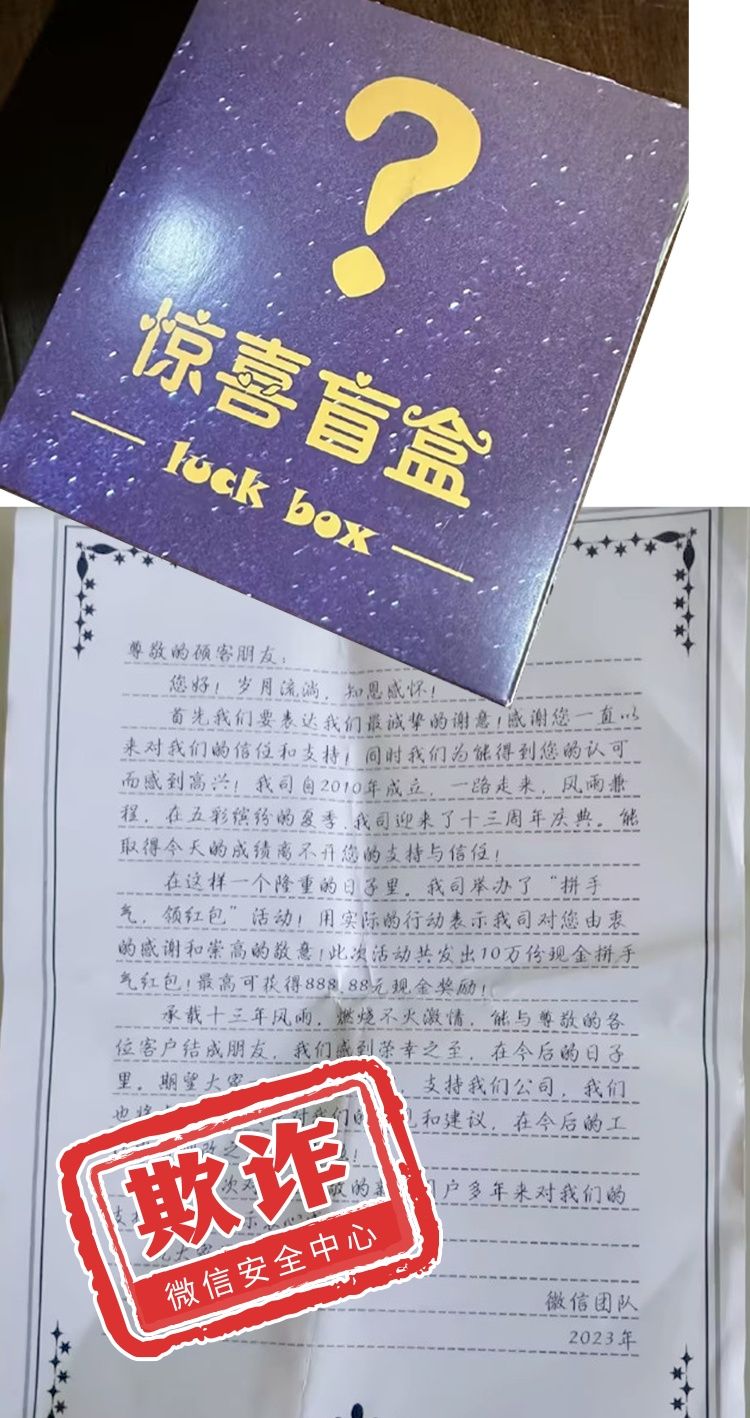 ?
惊喜盲盒
luck box
尊敬的顾客朋友:
您好!岁月流淌,知恩感怀!
首先我们要表达我们最诚挚的谢意!感谢您一直以
来对我们的信任和支持!同时我们为能得到您的认可
而感到高兴!我司自2010年成立,一路走来,风雨兼
程,在五彩缤纷的夏季,我司迎来了十三周年庆典。能
取得今天的成绩离不开您的支持与信任!
在这样一个隆重的日子里,我司举办了“拼手
气,领红包”活动!用实际的行动表示我司对您由衷
的感谢和崇高的敬意!此次活动共发出10万份现金拼手
气红包!最高可获得888.88元现金奖励!
承载十三年风雨,燃烧不火激情,能与尊敬的各
位客户结成朋友,我们感到荣幸之至,在今后的日子
里,期望大家 支持我们公司,我们
也将 对我们的 见和建议,在今后的工
改之
次对 敬的新 用户多年来对我们的
支持 示衷心
祝大家
欺诈
微信安全中心
微信团队
2023年